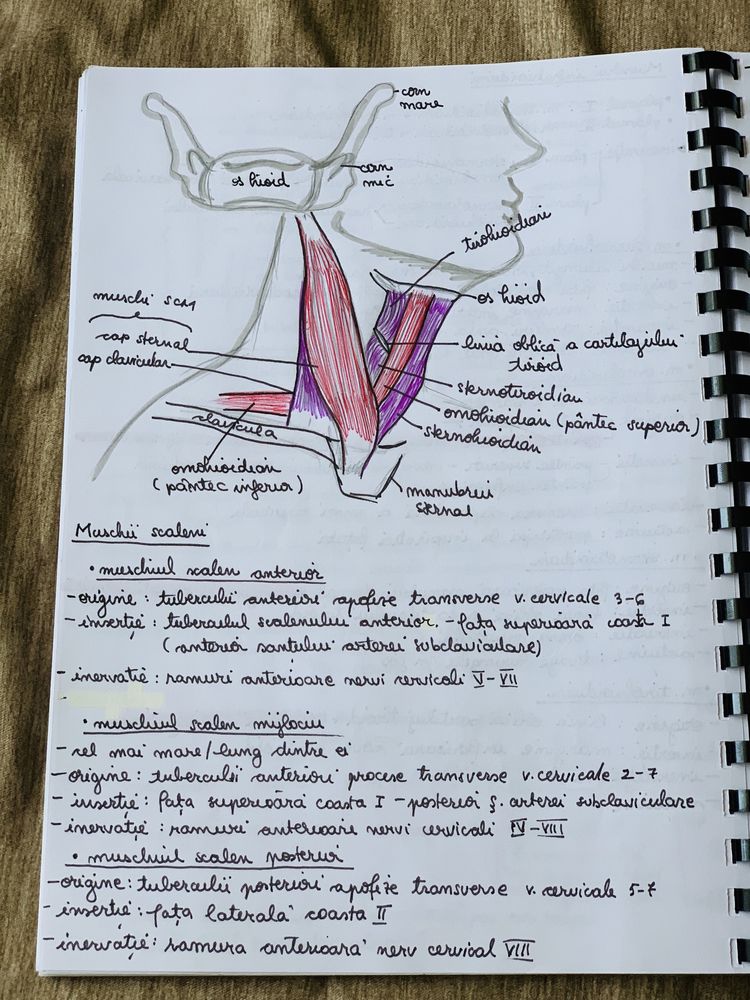 corn
mare
os hioid
corn
mic
tirohioidian
os hioid
muschi SCM
cap sternal
cap clavicular
linia oblică a cartilajului
tiroid
sternotiroidian
omohioidian (pântec superior)
sternohioidian
clavicula
omohioidian
(pântec inferior)
manubriu
sternal
Muschii scaleni
• muschiul scalen anterior
- origine: tuberculi anteriori apofize transverse v. cervicale 3-6
- inserție: tuberculul scalenului anterior. - fața superioară coasta I
(anterior santului arterei subclaviculare)
- inervatie: ramuri anterioare nervi cervicali V-VII
• muschiul scalen mijlociu
- cel mai mare/lung dintre ei
- origine: tuberculii anteriori procese transverse v. cervicale 2-7
- insertie: fața superioară coasta I - posterior ș. arterei subclaviculare
- inervație: ramuri anterioare nervi cervicali IV-VIII
• muschiul scalen posterior
- origine: tuberculii posteriori apofize transverse v. cervicale 5-7
- insertie: fața laterală coasta II
- inervatie: ramura anterioară nerv cervical VIII